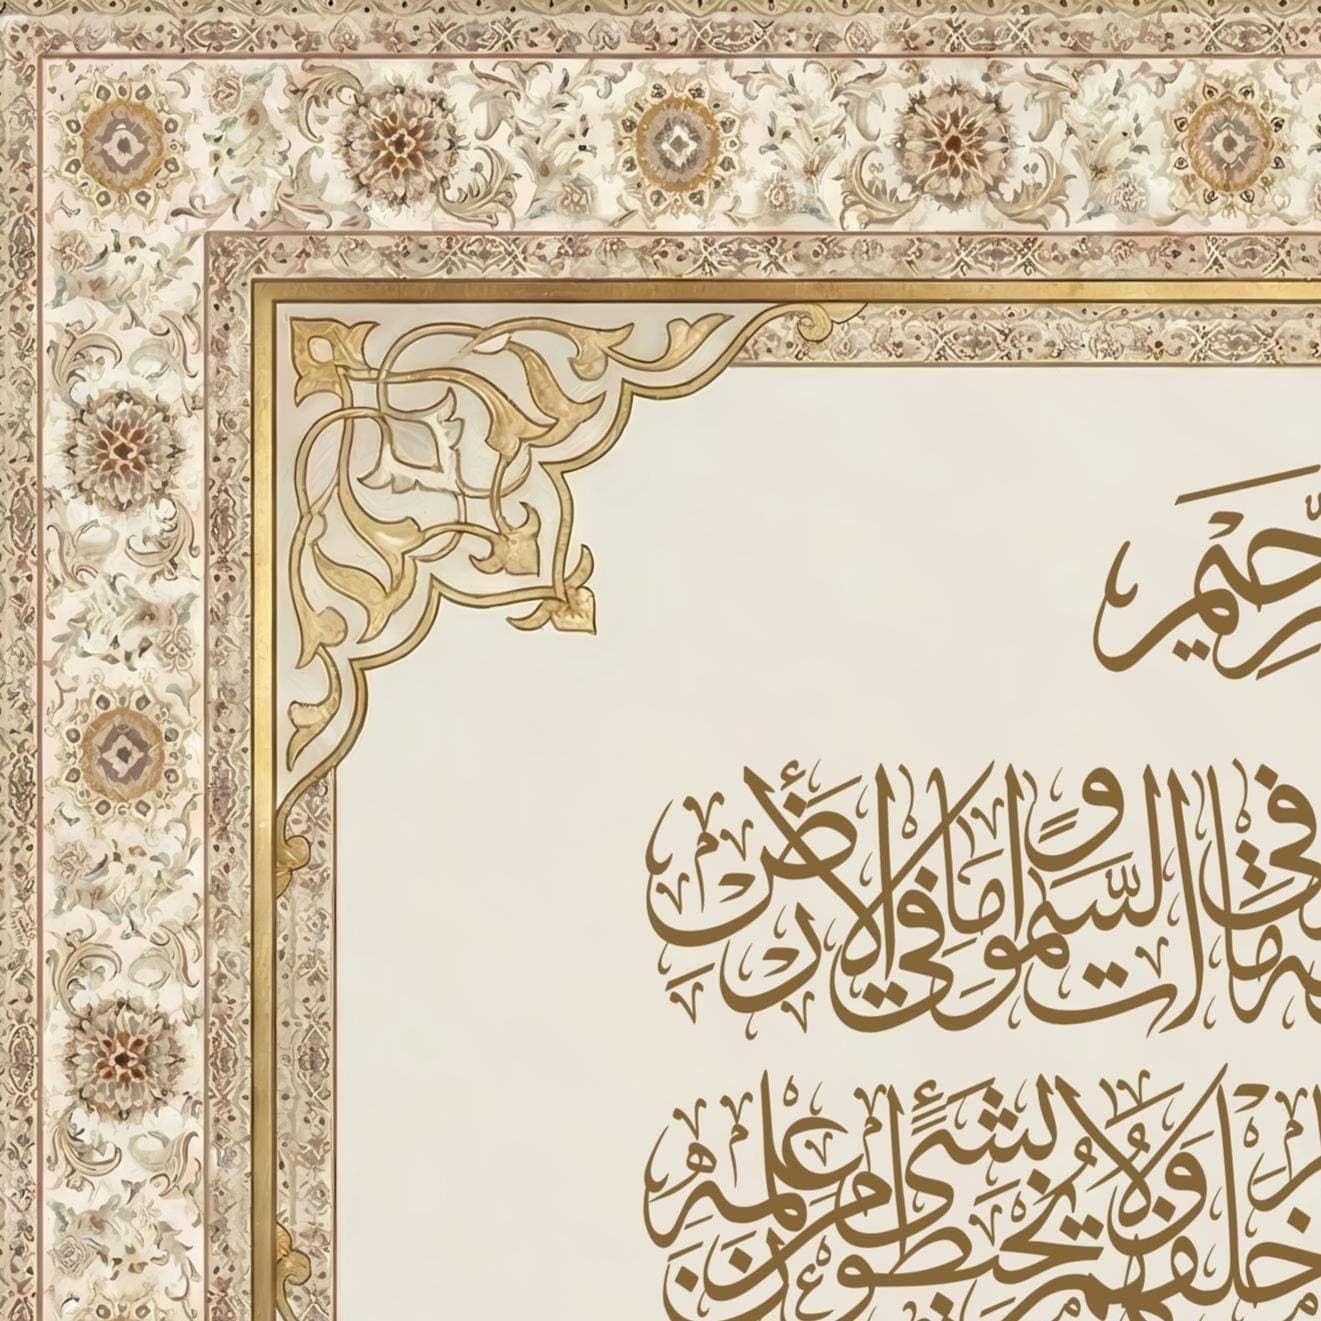 الرَّحِيمِ
فِي السَّمٰوَاتِ وَمَا فِي الْأَرْضِ
خَلْفَهُمْ وَلَا يُحِيطُونَ بِشَيْءٍ مِنْ عِلْمِهِ